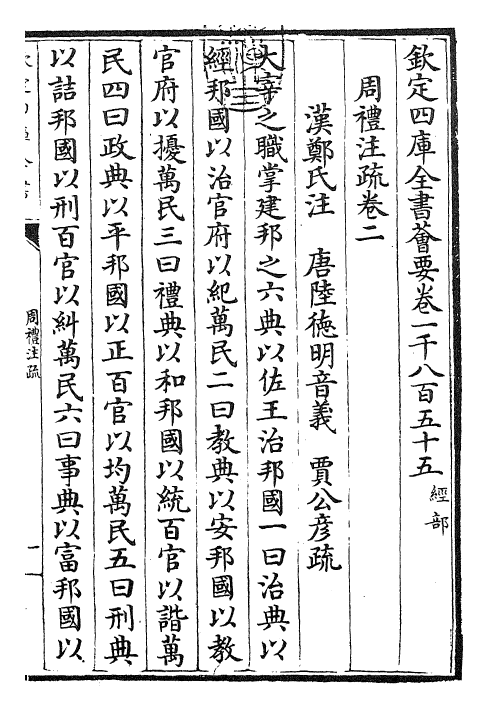 欽定四庫全書薈要卷一千八百五十五 經部
周禮注疏卷二
漢鄭氏注 唐陸德明音義 賈公彦疏
大宰之職掌建邦之六典以佐王治邦國一曰治典以
經邦國以治官府以紀萬民二曰教典以安邦國以教
官府以擾萬民三曰禮典以和邦國以統百官以諧萬
民四曰政典以平邦國以正百官以均萬民五曰刑典
以詰邦國以刑百官以糾萬民六曰事典以富邦國以
周禮注疏
一